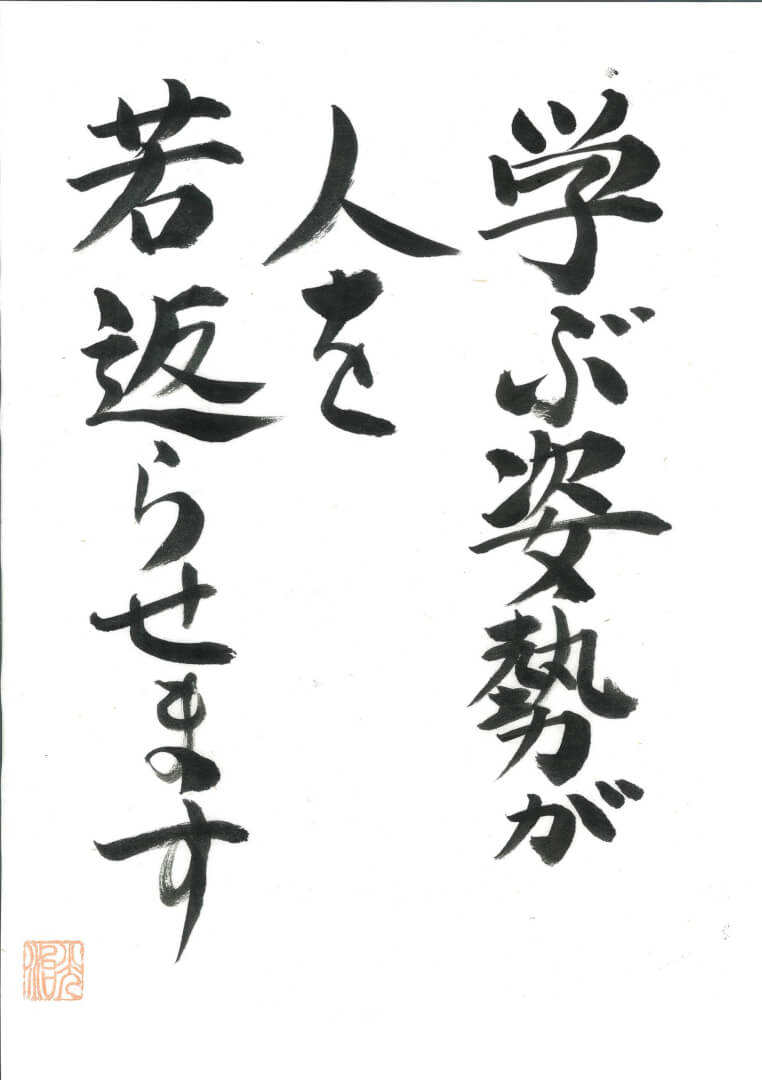 学ぶ姿勢が
人を
若返らせます